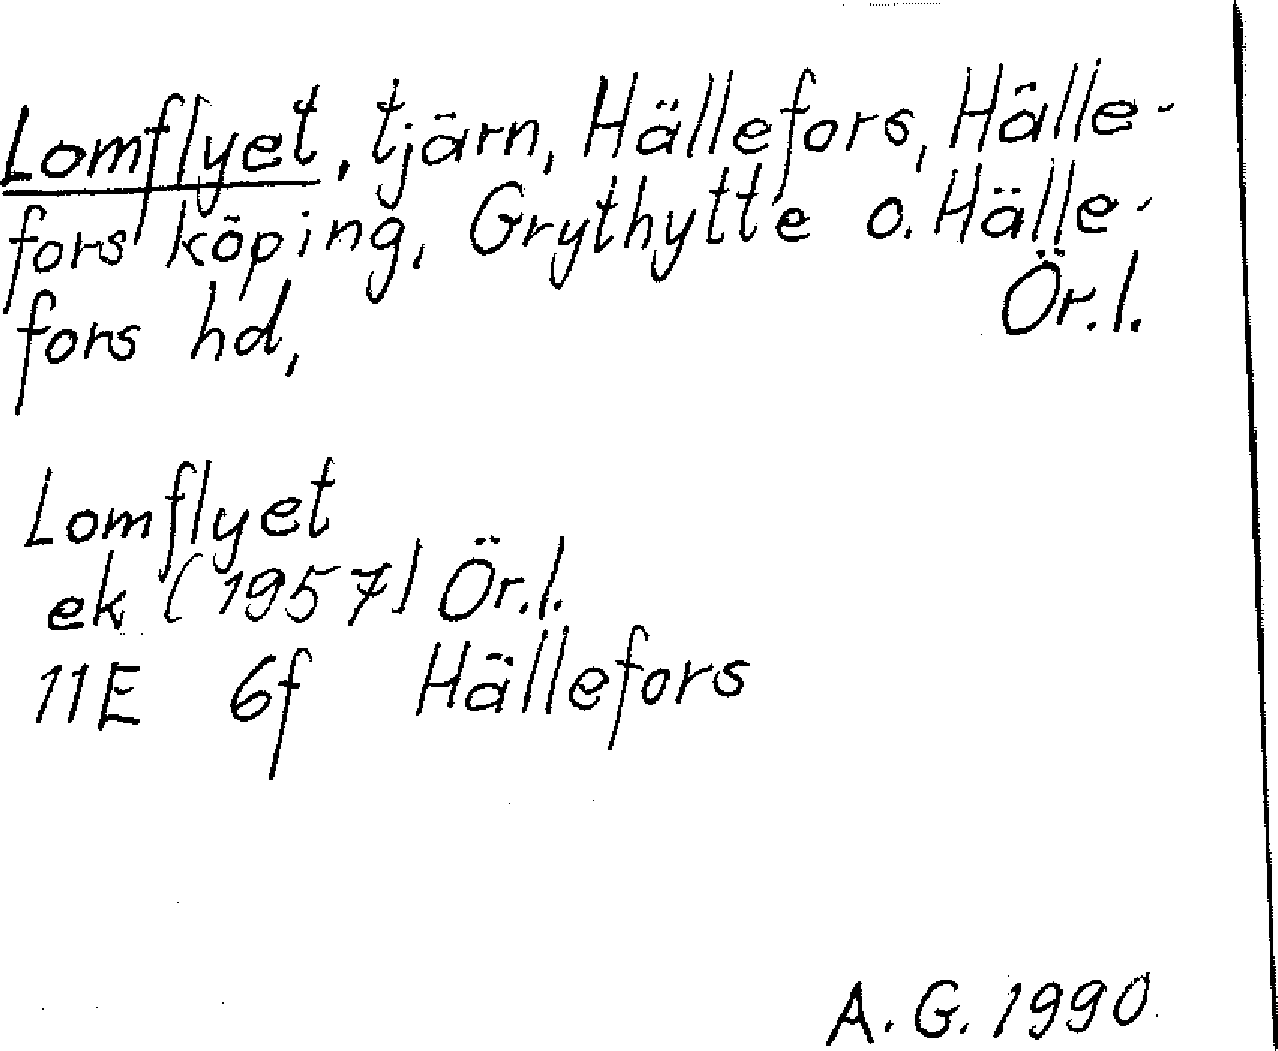 Lomflyet, tjärn, Hällefors, Hälle-
fors köping, Grythytte o. Hälle-
fors hd, Ör.l.
Lomflyet
ek (1957) Ör.l.
11E 6f Hällefors
A.G. 1990